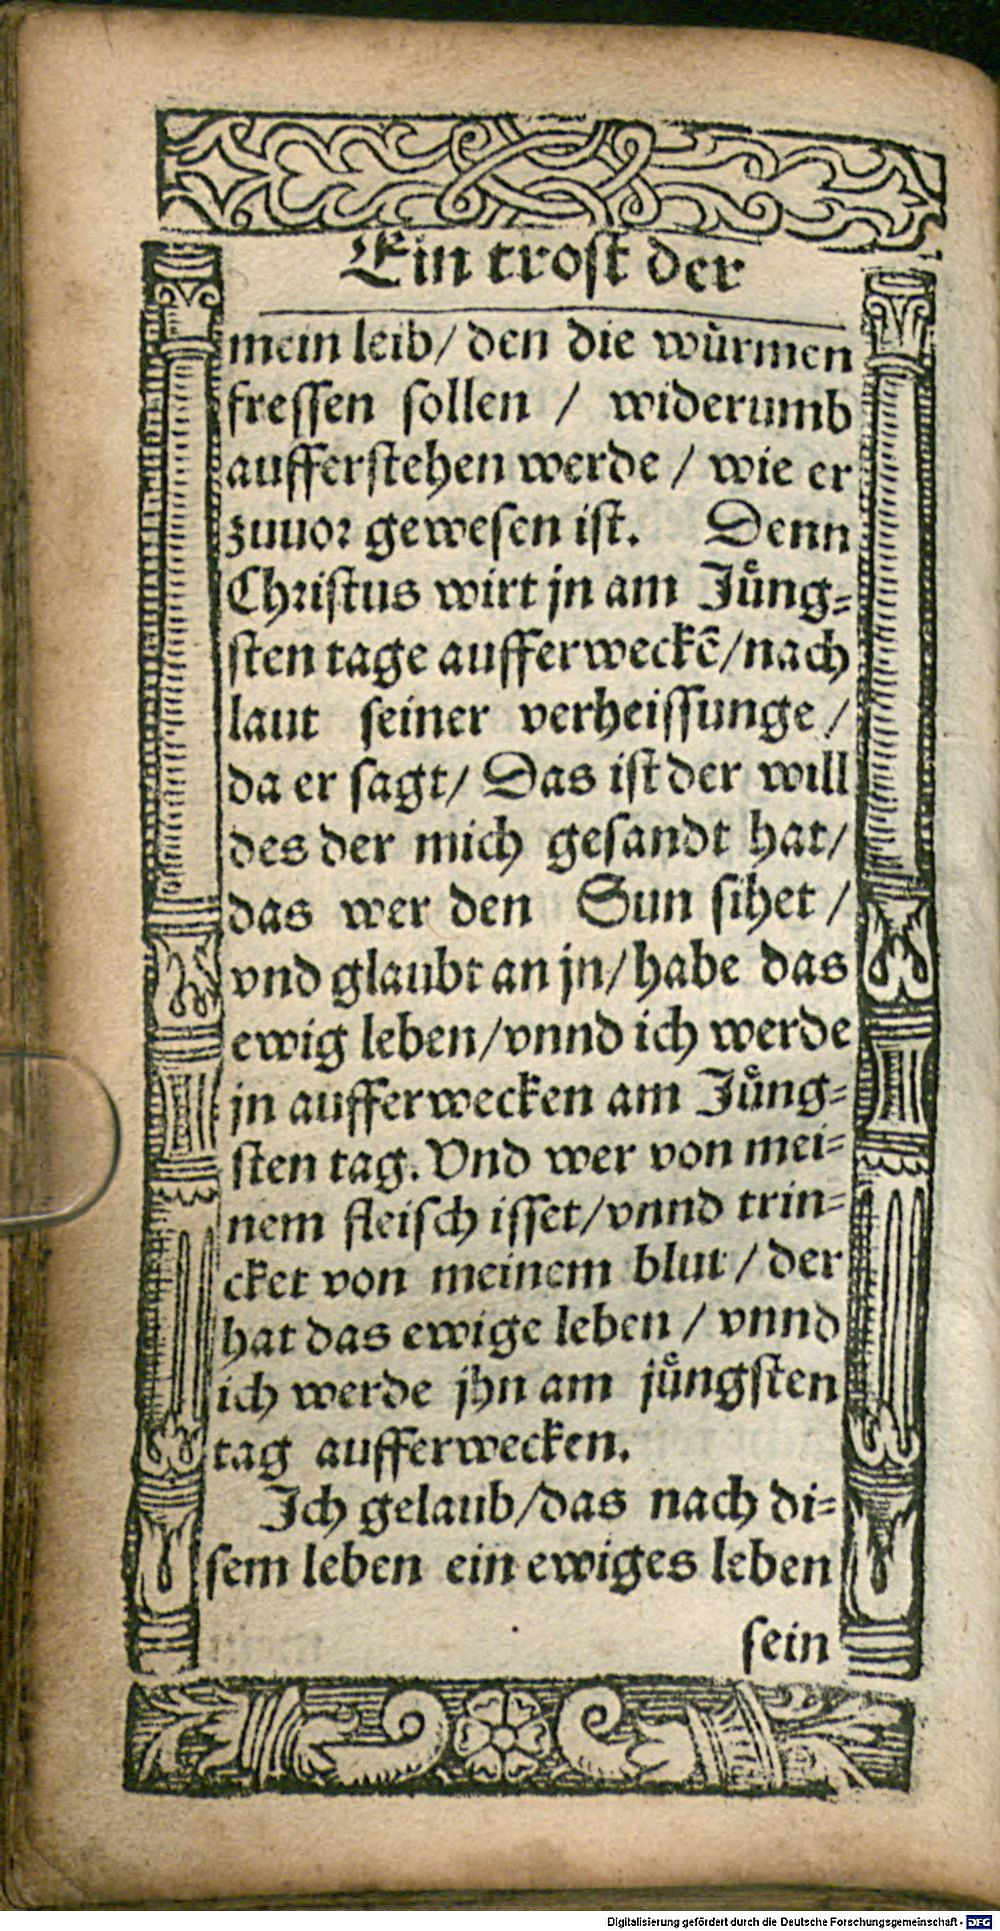 Ein trost der
mein leib/ den die wuͤrmen
fressen sollen / widerumb
aufferstehen werde / wie er
zuuor gewesen ist. Denn
Christus wirt jn am Juͤng⸗
sten tage aufferweckē/nach
laut seiner verheissunge /
da er sagt/ Das ist der will
des der mich gesandt hat/
das wer den Sun sihet /
vnd glaubt an jn/ habe das
ewig leben/vnnd ich werde
jn aufferwecken am Juͤng⸗
sten tag. Vnd wer von mei⸗
nem fleisch isset/vnnd trin⸗
cket von meinem blut / der
hat das ewige leben / vnnd
ich werde jhn am juͤngsten
tag aufferwecken.
Ich gelaub/das nach di⸗
sem leben ein ewiges leben
sein
Digitalisierung gefördert durch die Deutsche Forschungsgemeinschaft - DFG